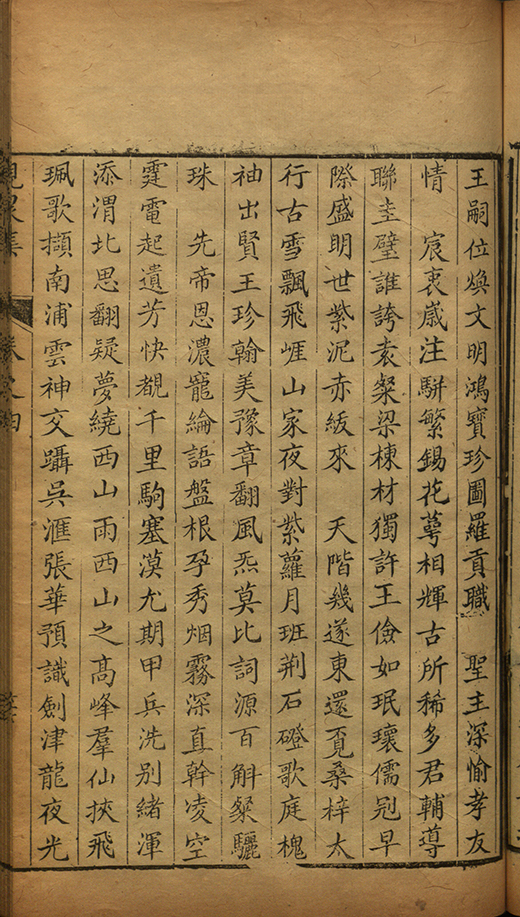 王嗣位煥文明鴻寶珍圖羅貢職　聖主深愉孝友
情　宸衷歲注駢繁錫花萼相輝古所稀多君輔導
聯圭璧誰誇袁粲梁棟材獨許王儉如珉瓌儒冠早
際盛明世紫泥赤紱來　天階幾遂東還覓桑梓太
行古雪飄飛崕山家夜對紫蘿月班荆石磴歌庭槐
袖出賢王珍翰美豫章翻風炁莫比詞源百斛粲驪
珠　先帝恩濃寵綸語盤根孕秀烟霧深直幹凌空
霆電起遺芳快覩千里駒塞漠尤期甲兵洗别緒渾
添渭北思翻疑夢繞西山雨西山之高峰羣仙挾飛
珮歌擷南浦雲神交躡吳滙張華預識劍津龍夜光